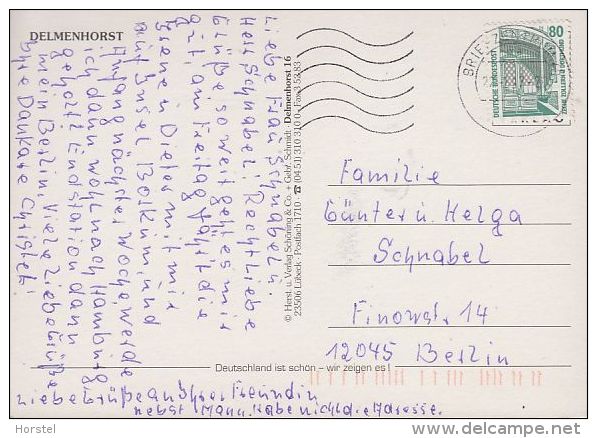 DELMENHORST
Liebe Frau Schnabel u.
Herr Schnabel! Recht liebe
Grüße so weit geht es mir
gut, am Freitag fährt die
Dieter mit mir
auf Insel Borkum, und
Anfang nächster Woche werde
ich dann wohl nach Hamburg
geholt! Endstation dann
mein Berlin. Viele liebe Grüße
Ihre Dankbare Christel!
Liebe Grüße an Ihrer Freundin
nebst Mann. Habe nicht die Adresse.
© Herst. u. Verlag Schöning & Co. + Gebr. Schmidt · Delmenhorst 16
23506 Lübeck · Postfach 1710 · ☎ (04 51) 310 310 0 · Fax 3 53 83
80
DEUTSCHE BUNDESPOST
ZECHE ZOLLERN II DORTMUND
BRIEFZENTRUM
Familie
Günter u. Helga
Schnabel
Finowstr. 14
12045 Berlin
Deutschland ist schön – wir zeigen es!
Horstel
www.delcampe.net